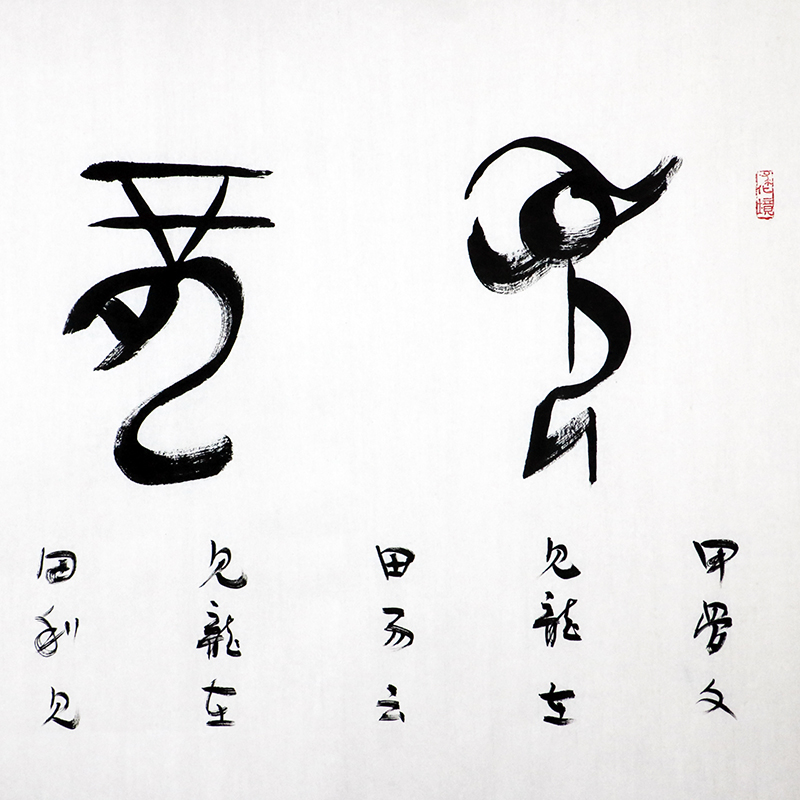 見龍
甲骨文
見龍在
田易云
見龍在
田利見